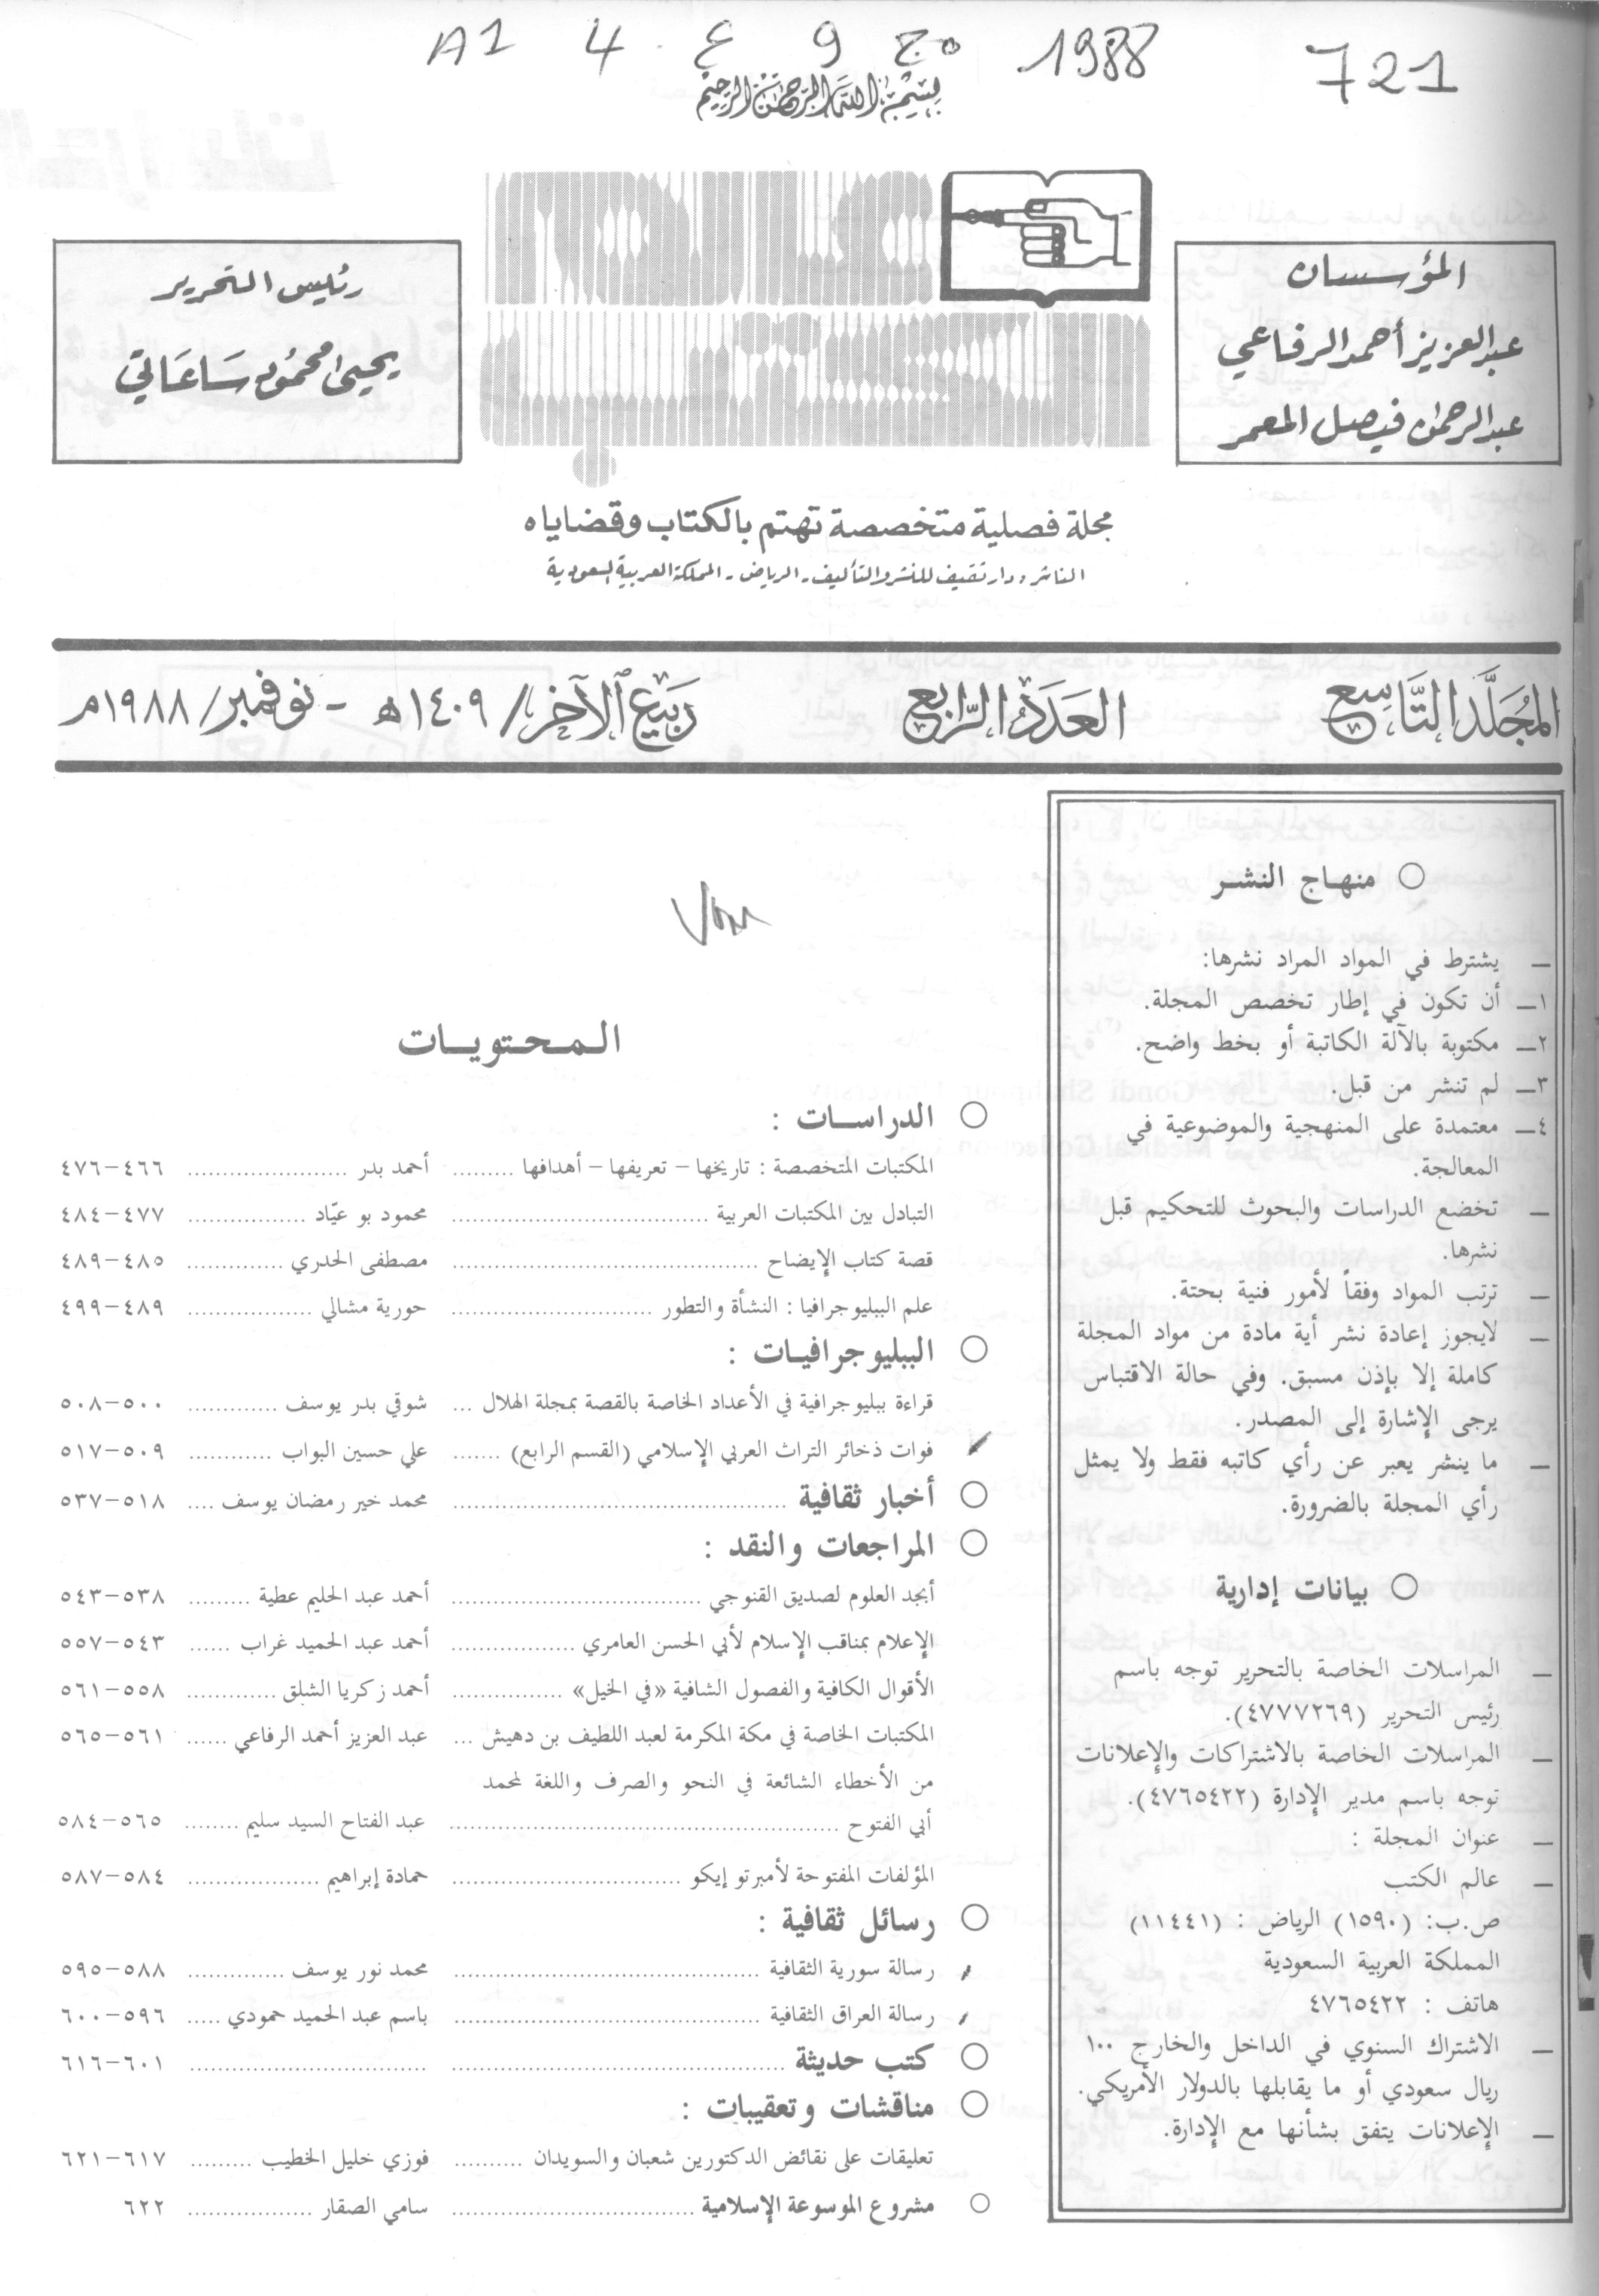 721 1988 مج 9 ع 4 A1
بسم الله الرحمن الرحيم
عالم
الكتب
المؤسسان
عبدالعزيز أحمد الرفاعي
عبدالرحمن فيصل المعمر
رئيس التحرير
يحيى محمود ساعاتي
مجلة فصلية متخصصة تهتم بالكتاب وقضاياه
الناشر: دار ثقيف للنشر والتأليف - الرياض - المملكة العربية السعودية
المجلد التاسع العدد الرابع ربيع الآخر/ ١٤٠٩هـ - نوفمبر/ ١٩٨٨م
منهاج النشر
— يشترط في المواد المراد نشرها:
١— أن تكون في إطار تخصص المجلة.
٢— مكتوبة بالآلة الكاتبة أو بخط واضح.
٣— لم تنشر من قبل.
٤— معتمدة على المنهجية والموضوعية في
المعالجة.
— تخضع الدراسات والبحوث للتحكيم قبل
نشرها.
— ترتب المواد وفقاً لأمور فنية بحتة.
— لايجوز إعادة نشر أية مادة من مواد المجلة
كاملة إلا بإذن مسبق. وفي حالة الاقتباس
يرجى الإشارة إلى المصدر.
— ما ينشر يعبر عن رأي كاتبه فقط ولا يمثل
رأي المجلة بالضرورة.
بيانات إدارية
— المراسلات الخاصة بالتحرير توجه باسم
رئيس التحرير (٤٧٧٧٢٦٩).
— المراسلات الخاصة بالاشتراكات والإعلانات
توجه باسم مدير الإدارة (٤٧٦٥٤٢٢).
— عنوان المجلة :
— عالم الكتب
ص.ب: (١٥٩٠) الرياض : (١١٤٤١)
المملكة العربية السعودية
هاتف : ٤٧٦٥٤٢٢
— الاشتراك السنوي في الداخل والخارج ١٠٠
ريال سعودي أو ما يقابلها بالدولار الأمريكي.
— الإعلانات يتفق بشأنها مع الإدارة.
المحتويات
الدراسات :
المكتبات المتخصصة : تاريخها – تعريفها – أهدافها ......... أحمد بدر ...................... ٤٦٦–٤٧٦
التبادل بين المكتبات العربية ................................... محمود بو عيّاد ................ ٤٧٧–٤٨٤
قصة كتاب الإيضاح .......................................... مصطفى الحدري ............. ٤٨٥–٤٨٩
علم الببليوجرافيا : النشأة والتطور ........................... حورية مشالي ................. ٤٨٩–٤٩٩
الببليوجرافيات :
قراءة ببليوجرافية في الأعداد الخاصة بالقصة بمجلة الهلال ... شوقي بدر يوسف ............ ٥٠٠–٥٠٨
فوات ذخائر التراث العربي الإسلامي (القسم الرابع) ....... علي حسين البواب ........... ٥٠٩–٥١٧
أخبار ثقافية .............................................. محمد خير رمضان يوسف .... ٥١٨–٥٣٧
المراجعات والنقد :
أبجد العلوم لصديق القنوجي .................................. أحمد عبد الحليم عطية ......... ٥٣٨–٥٤٣
الإعلام بمناقب الإسلام لأبي الحسن العامري ................. أحمد عبد الحميد غراب ...... ٥٤٣–٥٥٧
الأقوال الكافية والفصول الشافية «في الخيل» ............... أحمد زكريا الشلق ............ ٥٥٨–٥٦١
المكتبات الخاصة في مكة المكرمة لعبد اللطيف بن دهيش ... عبد العزيز أحمد الرفاعي ...... ٥٦١–٥٦٥
من الأخطاء الشائعة في النحو والصرف واللغة لمحمد
أبي الفتوح ..................................................... عبد الفتاح السيد سليم ........ ٥٦٥–٥٨٤
المؤلفات المفتوحة لأمبرتو إيكو ............................... حمادة إبراهيم .................. ٥٨٤–٥٨٧
رسائل ثقافية :
رسالة سورية الثقافية .......................................... محمد نور يوسف ............. ٥٨٨–٥٩٥
رسالة العراق الثقافية .......................................... باسم عبد الحميد حمودي ..... ٥٩٦–٦٠٠
كتب حديثة .................................................................... ٦٠١–٦١٦
مناقشات وتعقيبات :
تعليقات على نقائض الدكتورين شعبان والسويدان .......... فوزي خليل الخطيب ......... ٦١٧–٦٢١
مشروع الموسوعة الإسلامية ................................. سامي الصقار ................. ٦٢٢